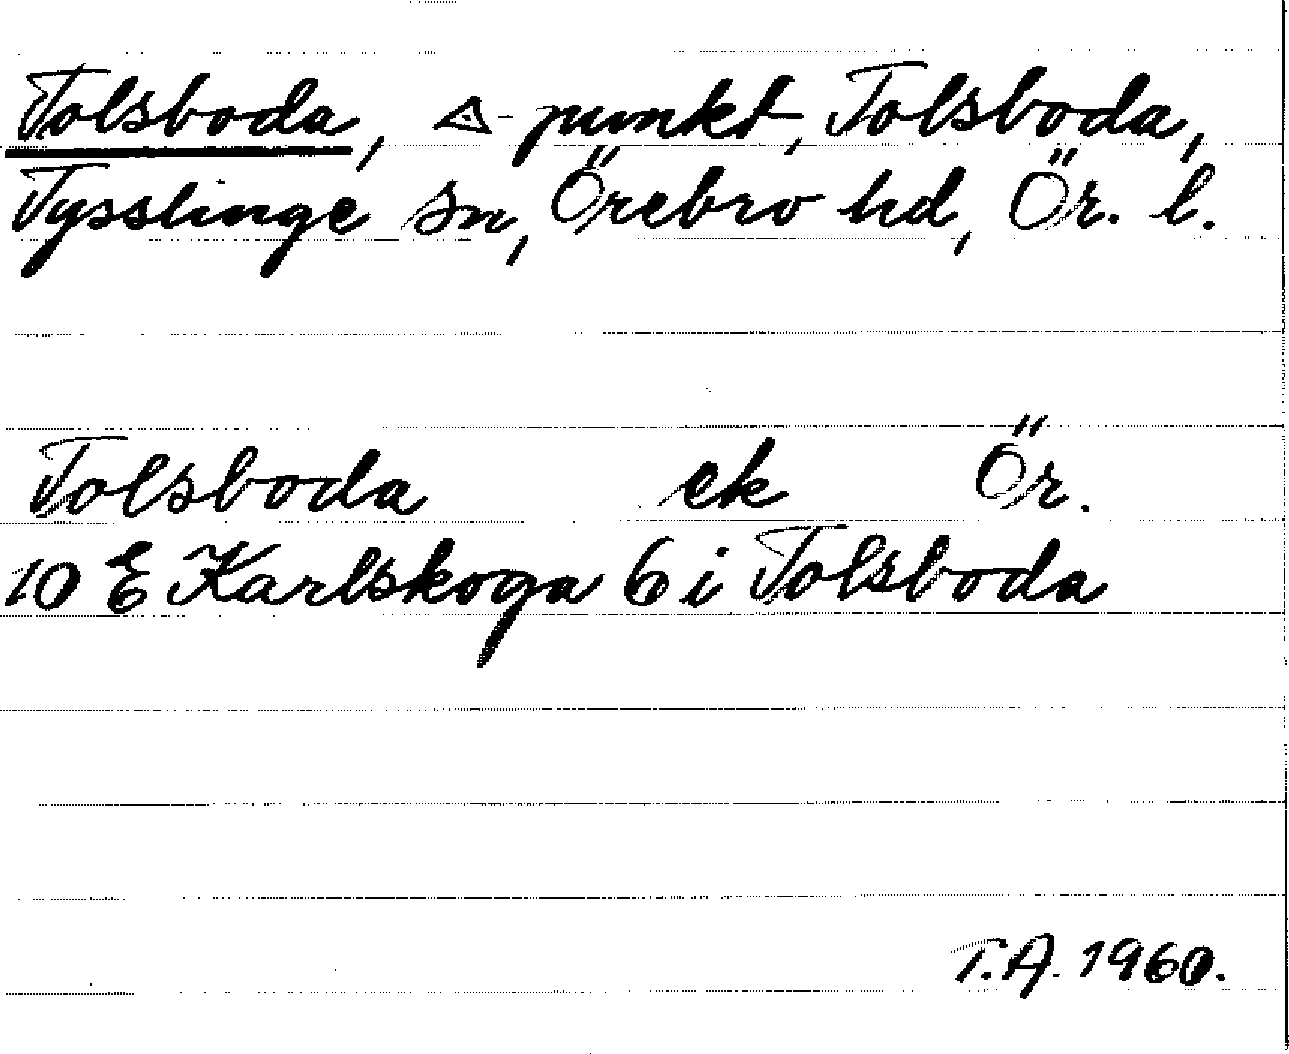 Tolsboda, △-punkt, Tolsboda,
Tysslinge sn, Örebro hd, Ör. l.
Tolsboda ek Ör.
10 E Karlskoga 6 i Tolsboda
T.A. 1960.